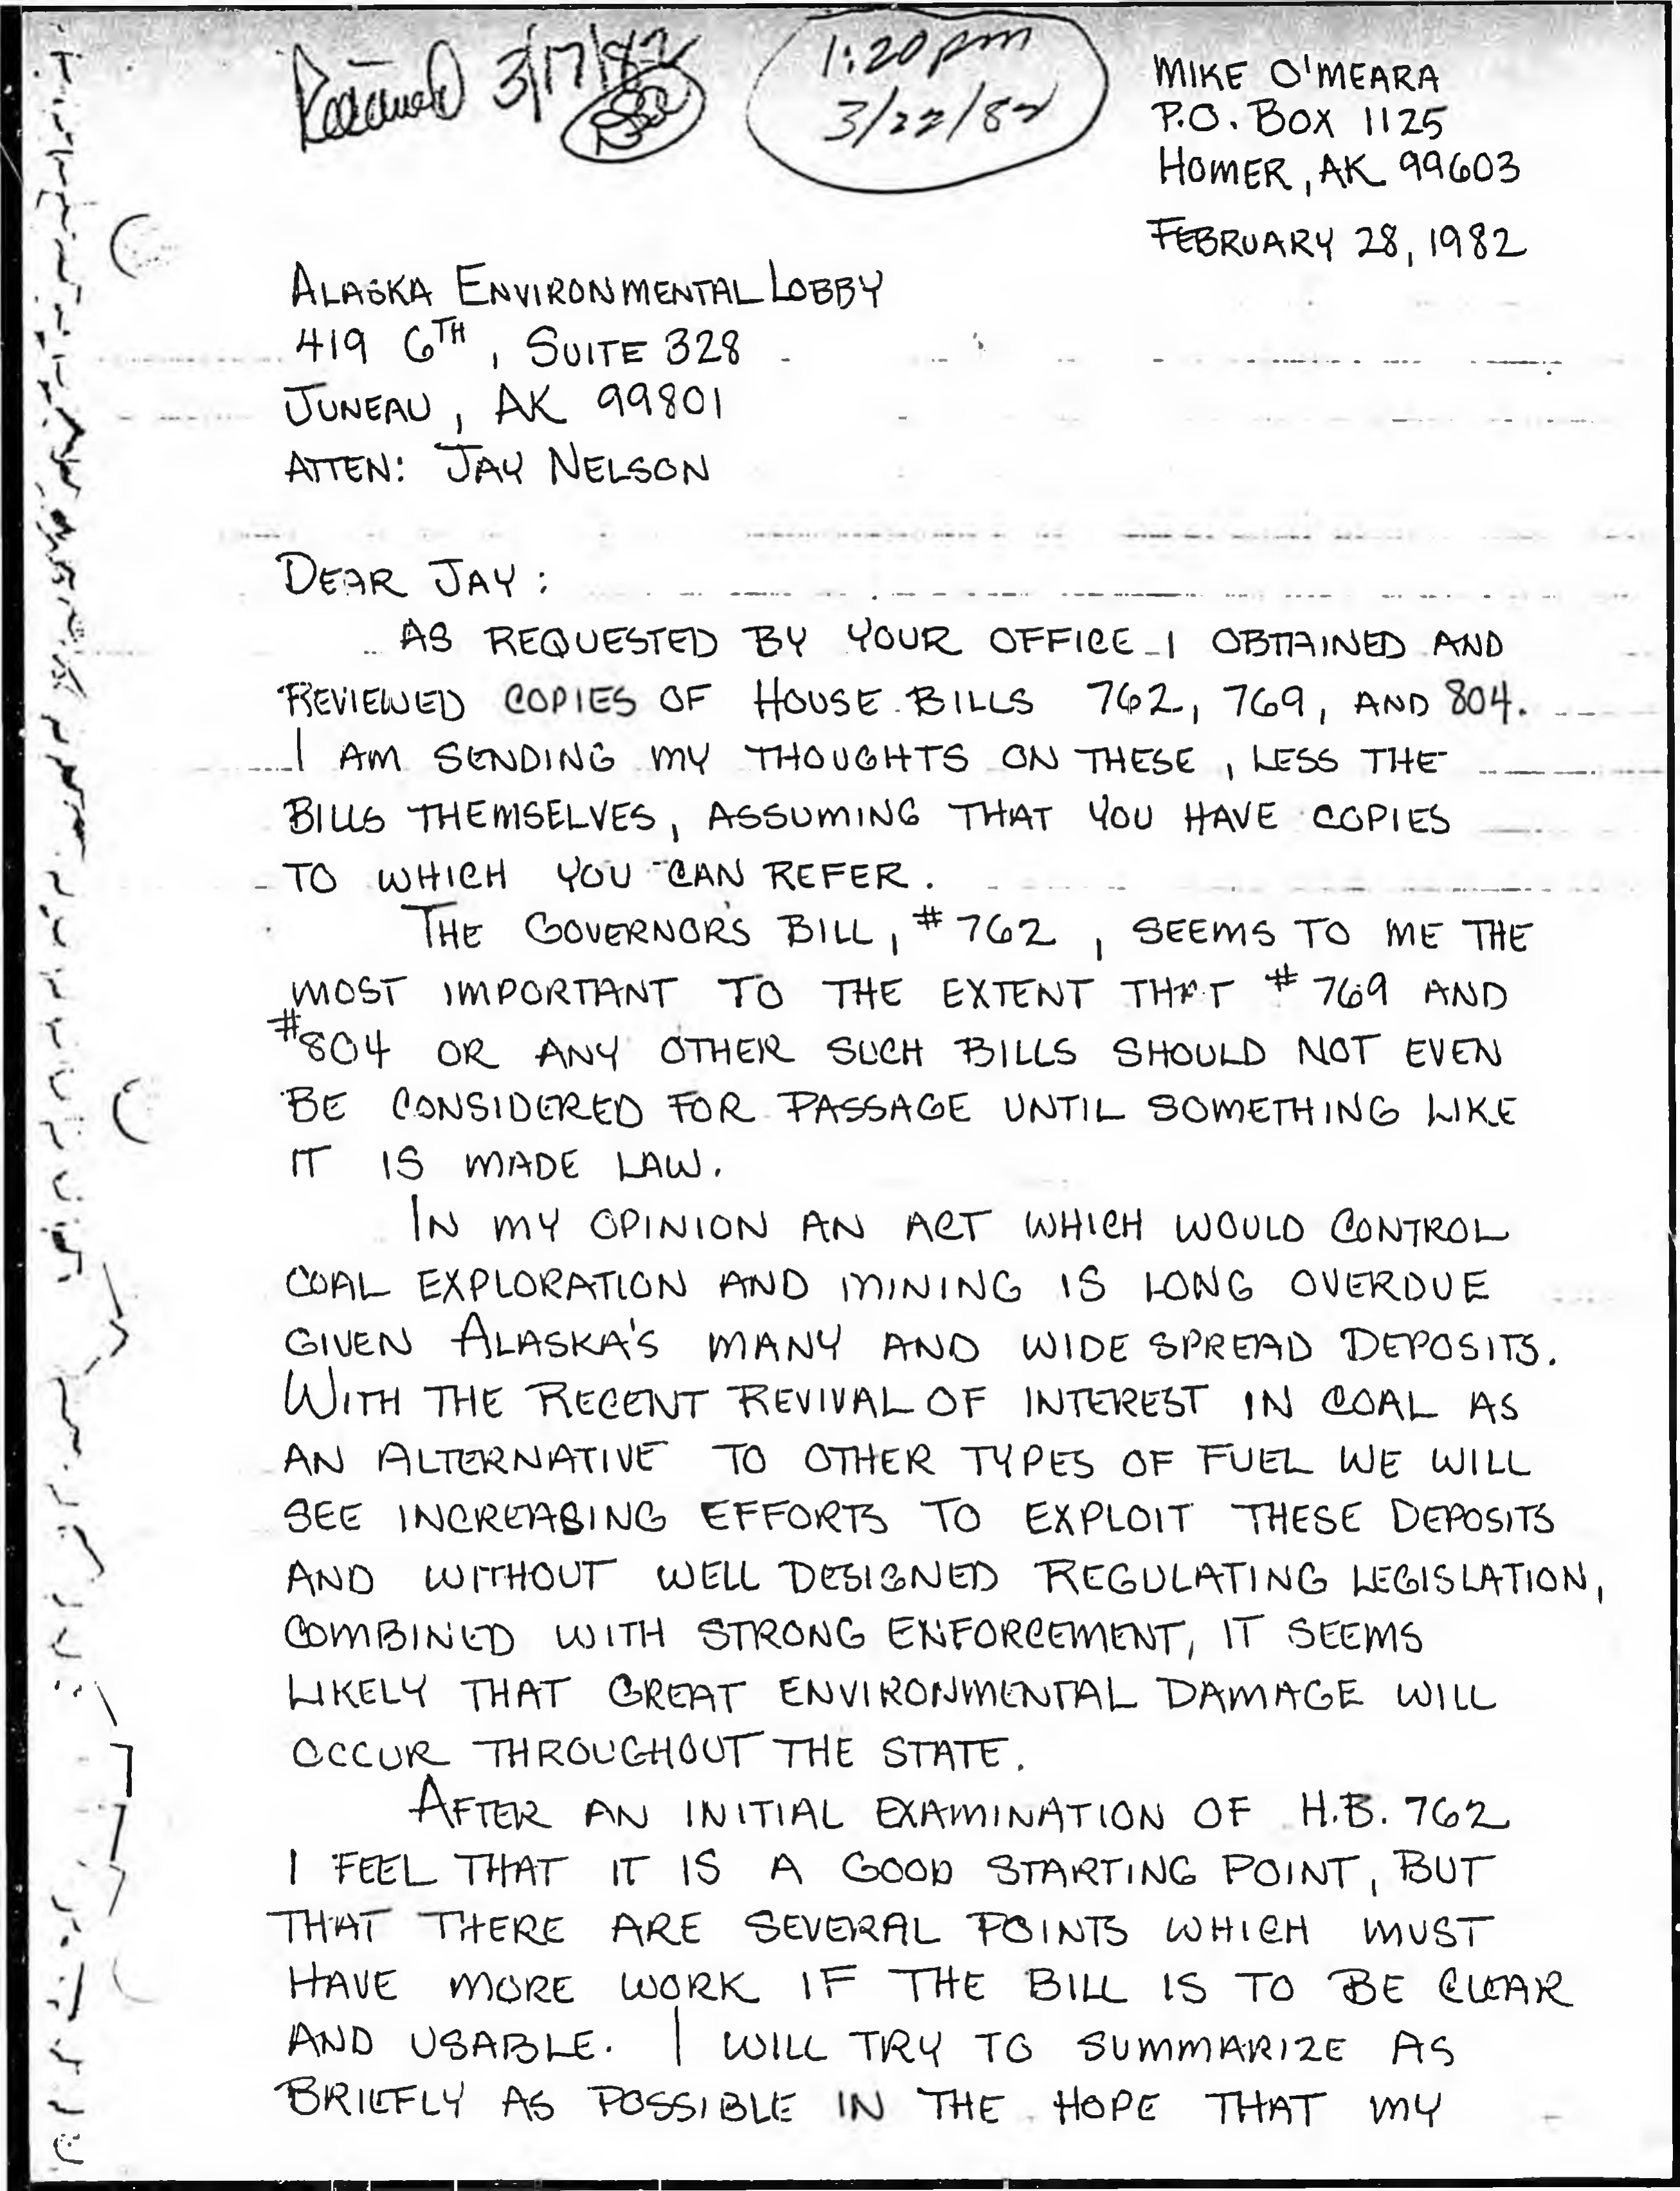 Received 3/17/82
1:20 pm
3/22/82
MIKE O'MEARA
P.O. BOX 1125
HOMER, AK 99603
FEBRUARY 28, 1982
ALASKA ENVIRONMENTAL LOBBY
419 6TH, SUITE 328
JUNEAU, AK 99801
ATTEN: JAY NELSON
DEAR JAY:
AS REQUESTED BY YOUR OFFICE I OBTAINED AND
REVIEWED COPIES OF HOUSE BILLS 762, 769, AND 804.
I AM SENDING MY THOUGHTS ON THESE, LESS THE
BILLS THEMSELVES, ASSUMING THAT YOU HAVE COPIES
TO WHICH YOU CAN REFER.
THE GOVERNOR'S BILL, #762, SEEMS TO ME THE
MOST IMPORTANT TO THE EXTENT THAT #769 AND
#804 OR ANY OTHER SUCH BILLS SHOULD NOT EVEN
BE CONSIDERED FOR PASSAGE UNTIL SOMETHING LIKE
IT IS MADE LAW.
IN MY OPINION AN ACT WHICH WOULD CONTROL
COAL EXPLORATION AND MINING IS LONG OVERDUE
GIVEN ALASKA'S MANY AND WIDE SPREAD DEPOSITS.
WITH THE RECENT REVIVAL OF INTEREST IN COAL AS
AN ALTERNATIVE TO OTHER TYPES OF FUEL WE WILL
SEE INCREASING EFFORTS TO EXPLOIT THESE DEPOSITS
AND WITHOUT WELL DESIGNED REGULATING LEGISLATION,
COMBINED WITH STRONG ENFORCEMENT, IT SEEMS
LIKELY THAT GREAT ENVIRONMENTAL DAMAGE WILL
OCCUR THROUGHOUT THE STATE.
AFTER AN INITIAL EXAMINATION OF H.B. 762
I FEEL THAT IT IS A GOOD STARTING POINT, BUT
THAT THERE ARE SEVERAL POINTS WHICH MUST
HAVE MORE WORK IF THE BILL IS TO BE CLEAR
AND USABLE. I WILL TRY TO SUMMARIZE AS
BRIEFLY AS POSSIBLE IN THE HOPE THAT MY